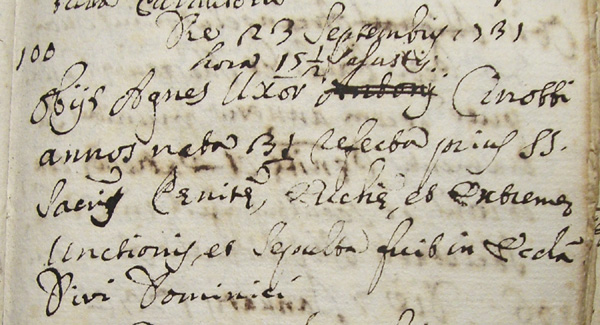 Die 23 Septembris 1731
100 hora 15 1/2
Obijt Agnes Uxor Antonij Cinotti
annos nata 31 refecta prius SS.
Sacris Penitẽ, Euchẽ, et Extremę
Unctionis, et sepulta fuit in Ecclã
Divi Dominici